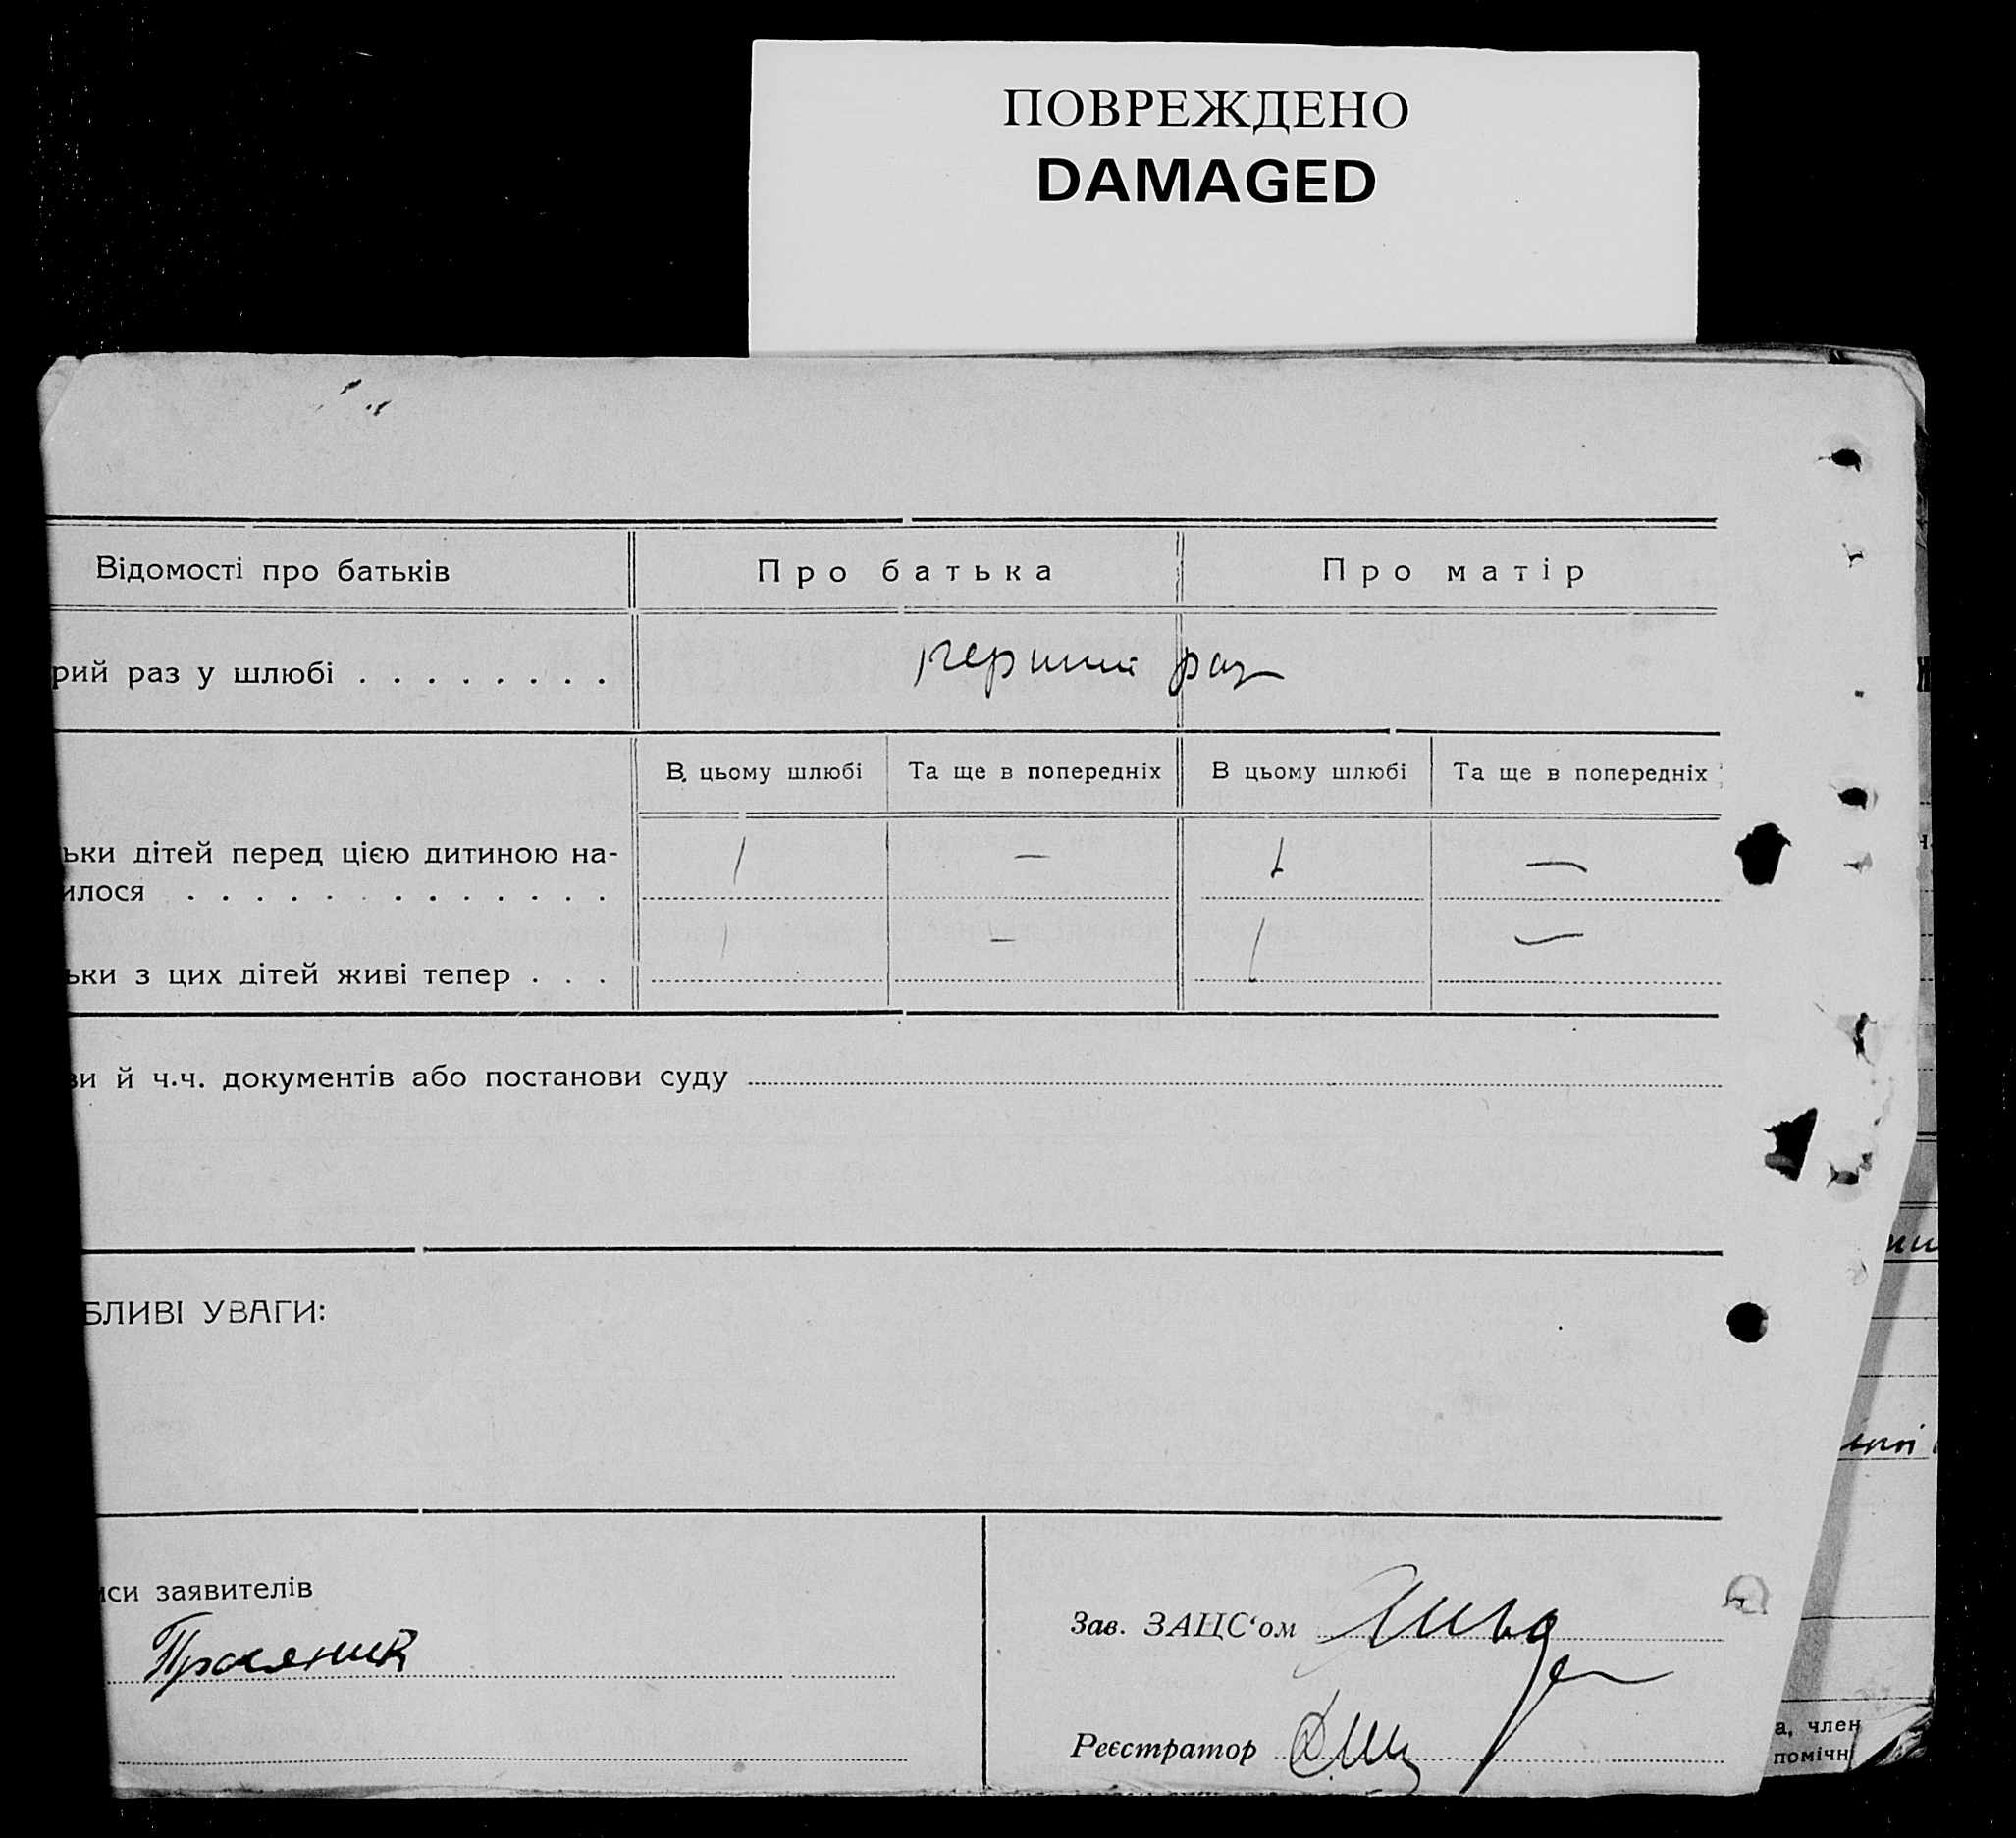 ПОВРЕЖДЕНО
DAMAGED
Відомості про батьків Про батька Про матір
рий раз у шлюбі . . . . . . . . перший раз
В цьому шлюбі Та ще в попередніх В цьому шлюбі Та ще в попередніх
ьки дітей перед цією дитиною на-
илося . . . . . . . . . . . . . 1 — 1 —
ьки з цих дітей живі тепер . . . 1 — 1 —
ви й ч.ч. документів або постанови суду
БЛИВІ УВАГИ:
иси заявителів
Зав. ЗАЦС‘ом
Реєстратор
а, член
помічн